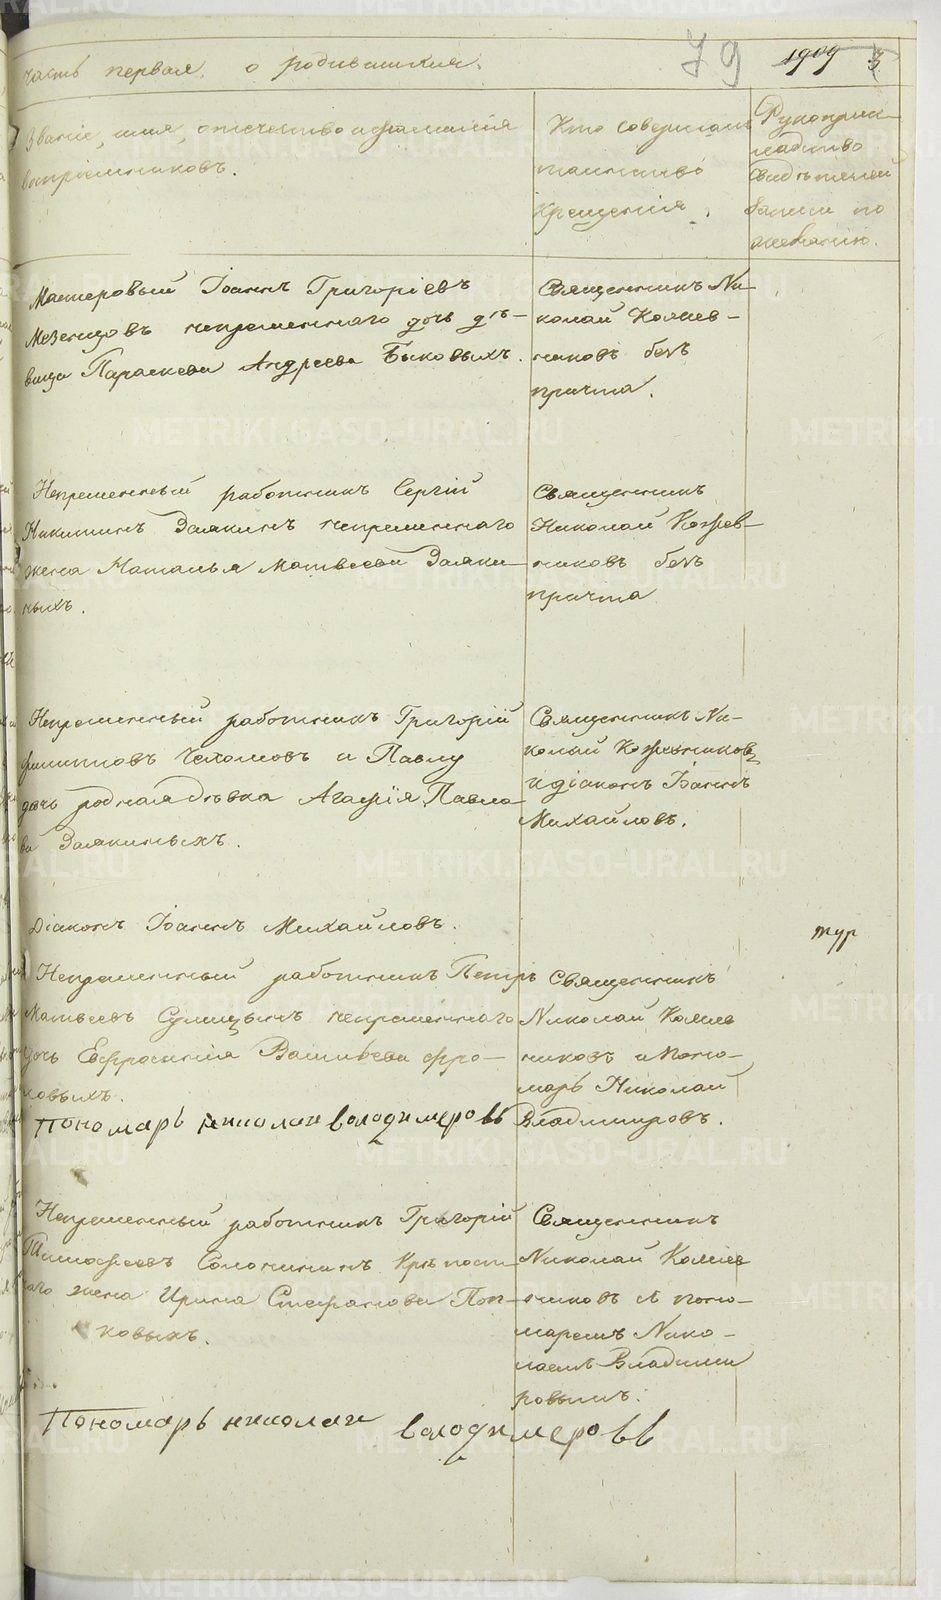 79 1909 3
часть первая. о родившихся.
Званіе, имя, отечество и фамилія
воспріемниковъ.
Кто совершалъ
таинство
крещенія.
Рукоприк-
ладство
свидѣтелей
записи по
желанію.
Мастеровый Іоаннъ Григоріевъ
Мезенцовъ непременнаго дочь дѣ-
вица Параскева Андреева Быковыхъ.
Священникъ Ни-
колай Кожев-
никовъ безъ
причта.
Непременный работникъ Сергій
Никитинъ Заякинъ непременнаго
жена Наталья Матвеева Заяки-
ныхъ.
Священникъ
Николай Кожев-
никовъ безъ
причта
Непременный работникъ Григорій
Филипповъ и Павлу
дочь родная девка Агафія Павло-
ва Заякиныхъ.
Священникъ Ни-
колай Кожевниковъ
и діаконъ Іоаннъ
Михайловъ.
Діаконъ Іоаннъ Михайловъ.
Непременный работникъ Петръ
Матвеевъ непременнаго
дочь Евфросинія Васильева Фро-
ловыхъ.
Пономарь николаи володимеровъ
Священникъ
Николай Кожев
никовъ и поно-
марь Николай
Владимировъ.
тур
Непременный работникъ Григорій
Тимофеевъ Солонининъ Крѣпост-
наго жена Ирина Стефанова Поп-
ковыхъ.
Священникъ
Николай Кожев
никовъ съ поно-
маремъ Нико-
лаемъ Владими
ровымъ.
Пономарь николаи володимеровъ
METRIKI.GASO-URAL.RU